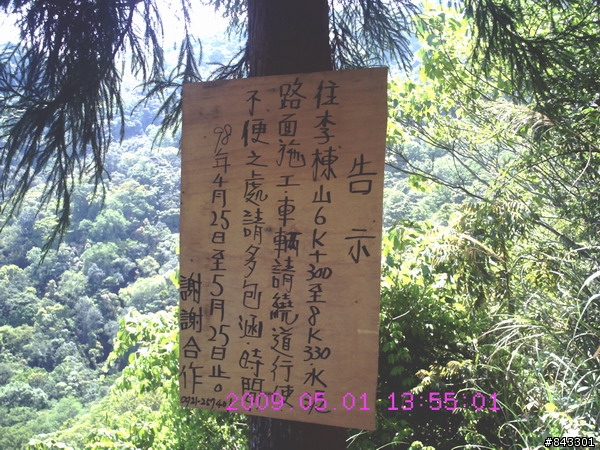 告示
往李棟山6K+300至8K330永定
路面施工車輛請繞道行使
不便之處請多包涵.時間
98年4月25日至5月25日止。
謝謝合作
2009 05 01 13:55:01
#843301